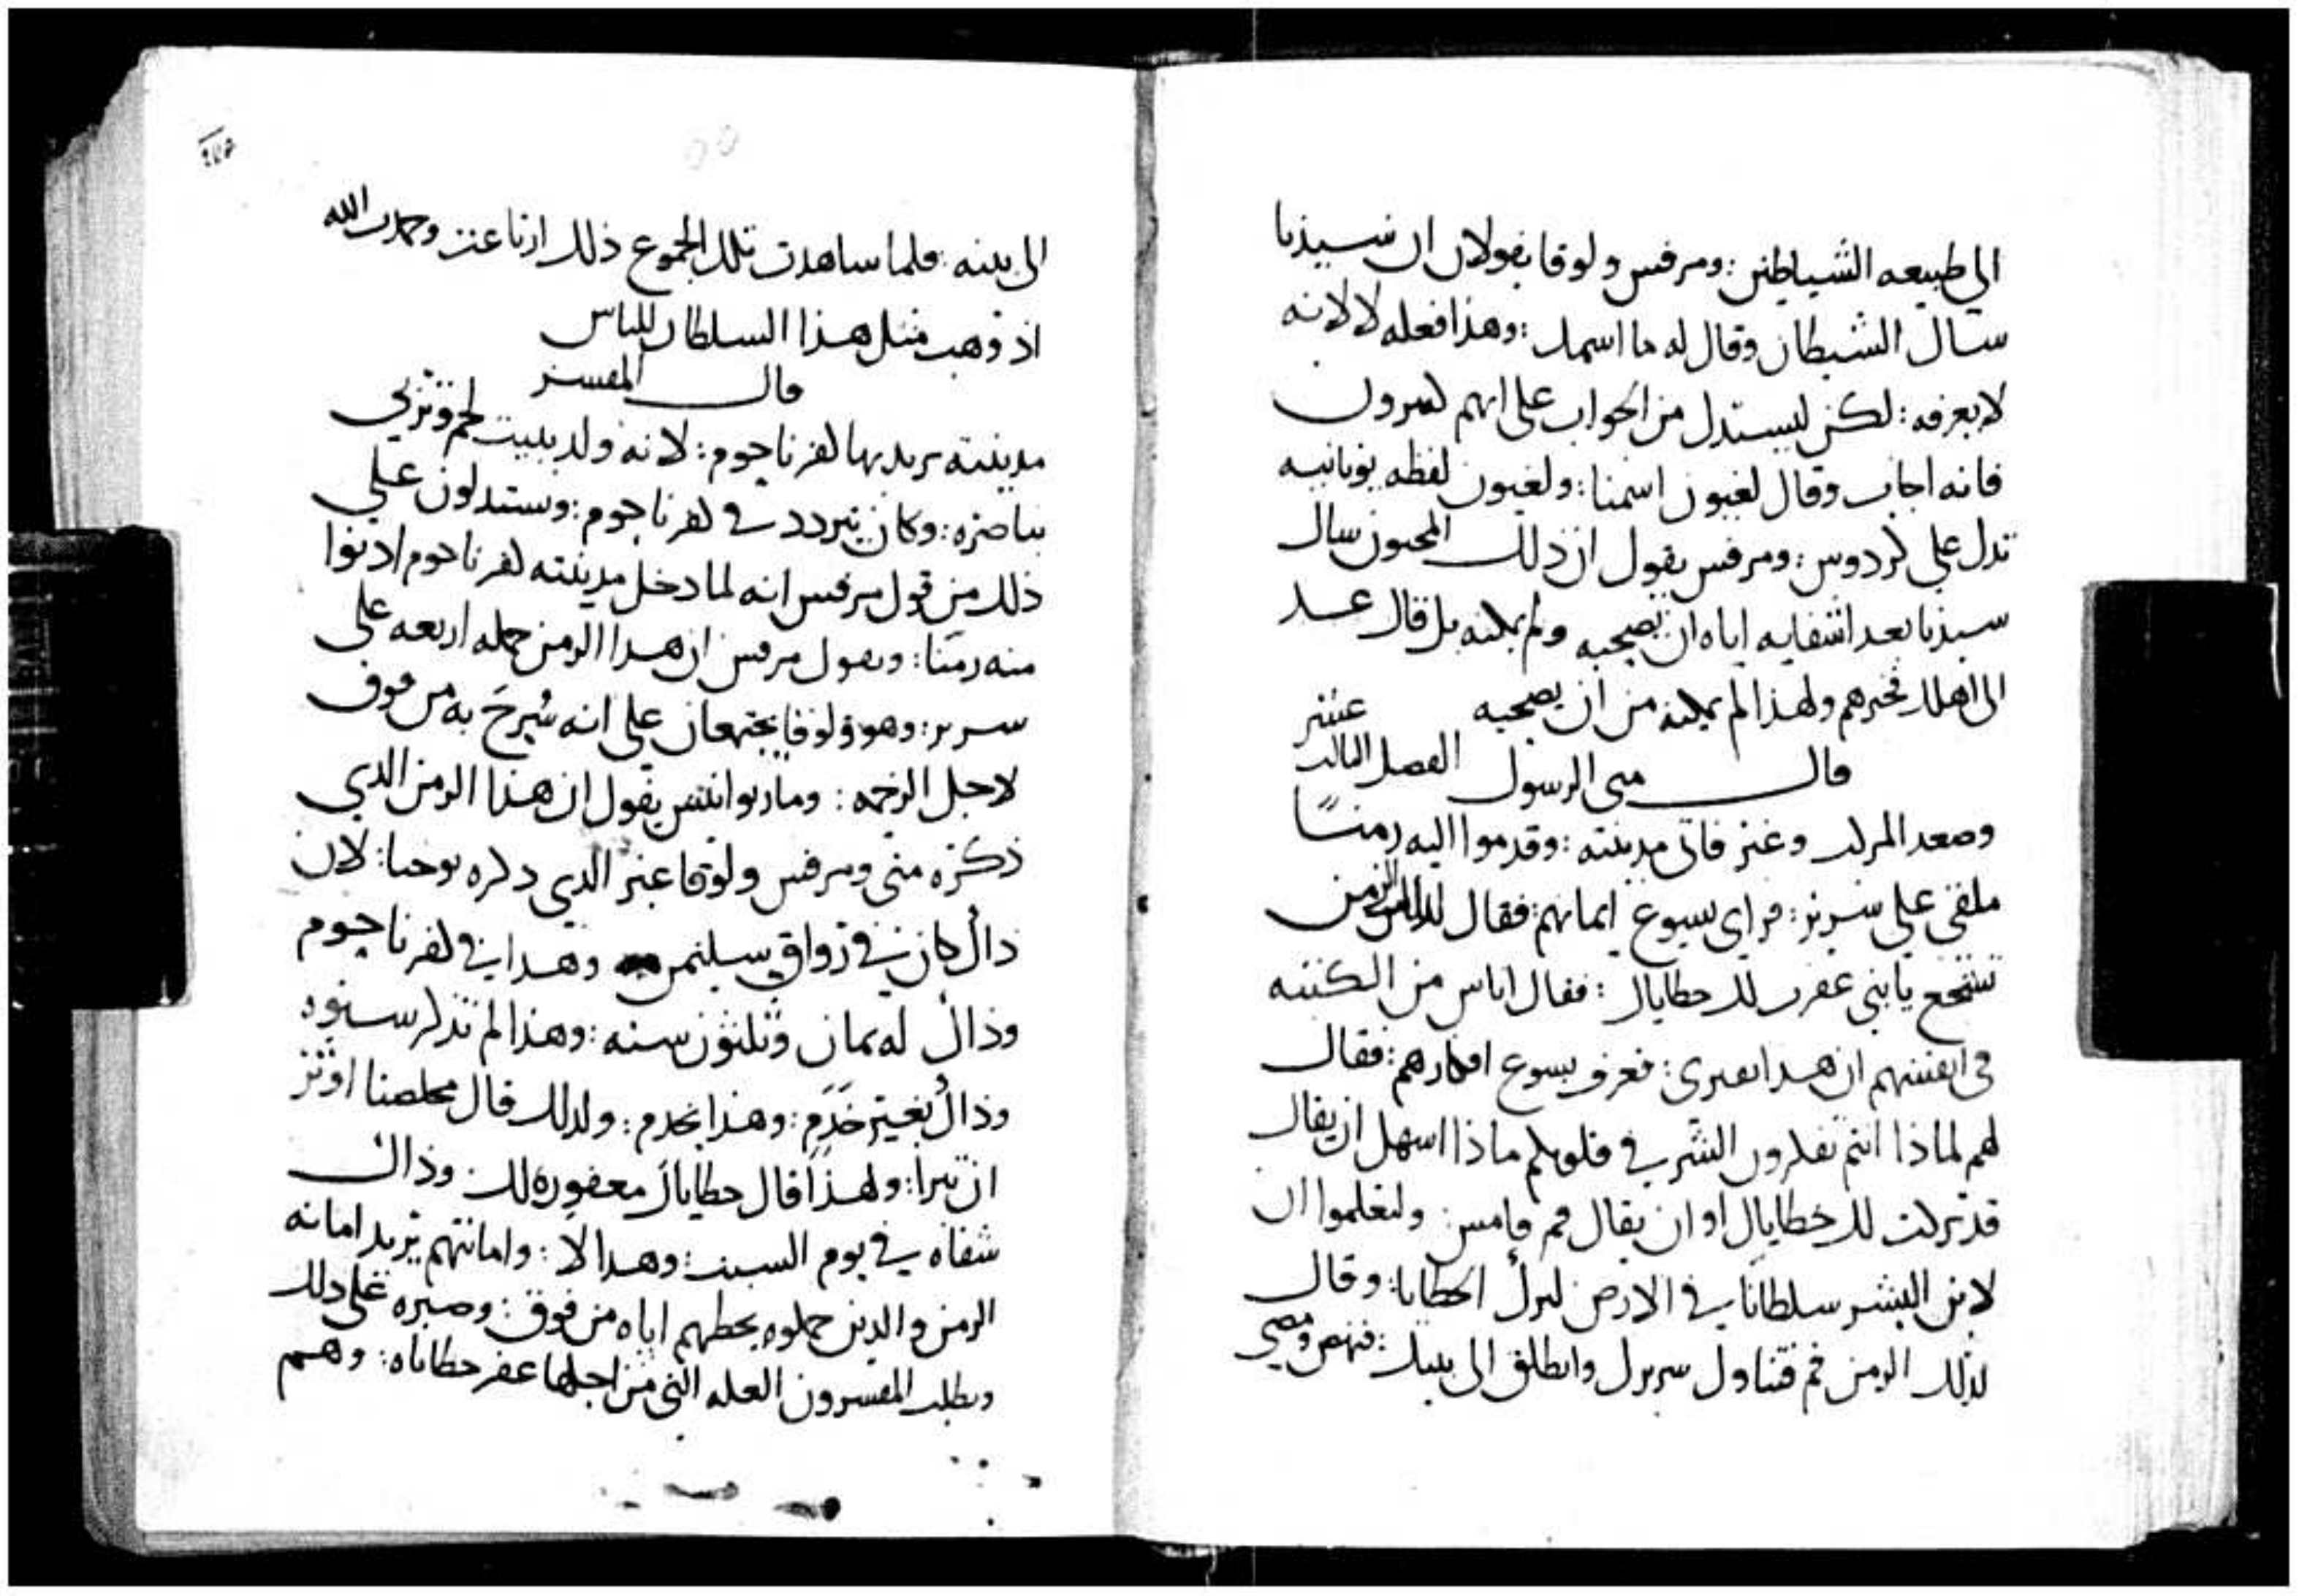 الى طبيعه الشياطين: ومرقس ولوقا يقولان ان سيدنا
سال الشيطان وقال له ما اسمك: وهذا فعله لا لانه
لا يعرفه: لكن ليستدل من الجواب على انهم كثيرون
فانه اجاب وقال لغيون اسمنا: ولغيون لفظه يونانيه
تدل على كردوس: ومرقس يقول ان ذلك المجنون سال
سيدنا بعد اشفايه اياه ان يصحبه ولم يمكنه بل قال عد
الى اهلك فخبرهم ولهذا لم يمكنه من ان يصحبه
قال متى الرسول الفصل الثالث عشر
وصعد المركب وعبر فاتى مدينته: وقدموا اليه زمنًا
ملقى على سرير: فراى يسوع ايمانهم: فقال لذلك الزمن
تشجع يا بني غفرت لك خطاياك: فقال اناس من الكتبه
في انفسهم ان هذا يفتري: فعرف يسوع افكارهم: فقال
لهم لماذا انتم تفكرون الشر في قلوبكم ماذا اسهل ان يقال
قد تركت لك خطاياك او ان يقال قم فامس: ولتعلموا ان
لابن البشر سلطانا في الارض لترك الخطايا: وقال
لذلك الزمن قم فتناول سريرك وانطلق الى بيتك: فنهض ومضى
الى بيته: فلما ساهدت تلك الجموع ذلك ارتاعت وحمدت الله
اذ وهب مثل هذا السلطان للناس
قال المفسر
مدينته يريد بها كفرناحوم: لانه ولد ببيت لحم وتربى
بناصره: وكان يتردد في كفرناحوم: وستدلون على
ذلك من قول مرقس انه لما دخل مدينته كفرناحوم ادنوا
منه زمنا: ويقول مرقس ان هذا الزمن حمله اربعه على
سرير: وهو ولوقا يجتمعان على انه سُرحَ به من فوق
لاجل الزحمه: وماريوانيس يقول ان هذا الزمن الذي
ذكره متى ومرقس ولوقا غير الذي ذكره يوحنا: لان
ذاك كان في زواق سليمن وهذا في كفرناحوم
وذاك له ثمان وثلثون سنه: وهذا لم تذكر سنوه
وذاك بغير خَدَمٍ: وهذا بخدم: ولذلك قال مخلصنا اوثر
ان تبرا: ولهذا قال خطاياك مغفوره لك وذاك
شفاه في يوم السبت: وهذا لا: وامانتهم يريد امانه
الزمن والذين حملوه بحطهم اياه من فوق: وصبره على ذلك
ويطلب المفسرون العله التي من اجلها غفر خطاياه: وهم